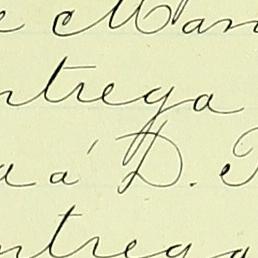 e Man
ntrega
a á D.
ntrega